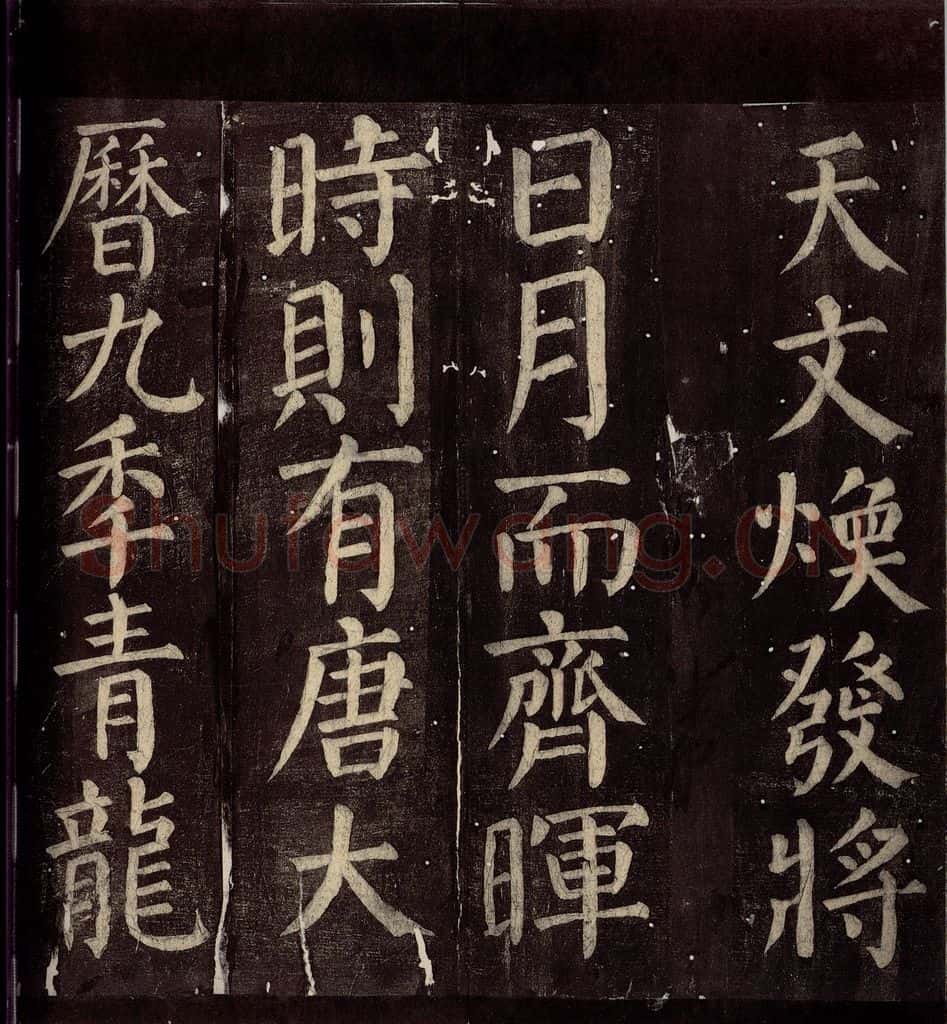 天文煥發將
日月而齊暉
時則有唐大
曆九季青龍
Shufawang.CN